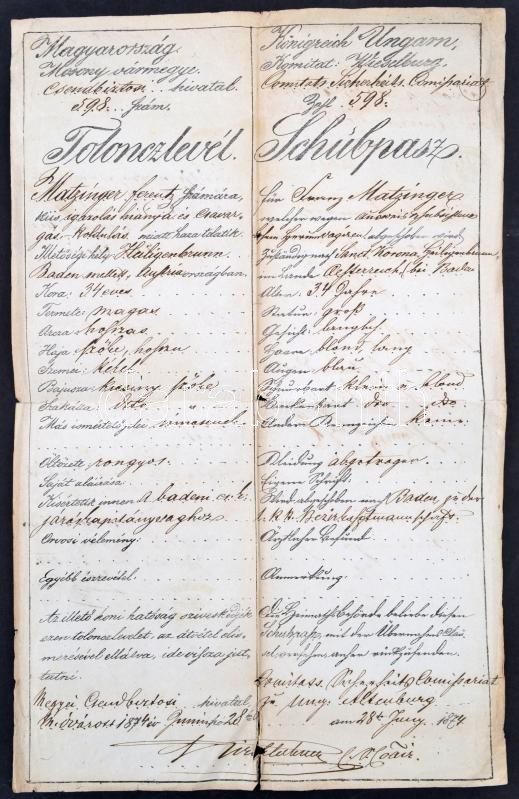 Magyarország
Mosony vármegye.
Csendbiztosi hivatal.
598. szám.
Toloncz levél.
Matzinger Ferentz számára,
ki igazolás hiánya és csavar-
gás koldulás miatt haza tolatik.
Illetőségi hely: Heiligenbrunn.
Baden mellett, Austria országban.
Kora: 34 éves.
Termete: magas
Arcza: hoszas
Haja szőke, hoszu
Szemei: kék
Bajusza: kicsiny szőke
Szakálla: dto
Más ismértető jelei
Öltözete rongyos.
Saját aláirása:
Kisértetik innen a badeni cs. k.
járáskapitánysághoz
Orvosi vélemény:
Egyébb észrevétel:
Az illető honi hatóság sziveskedjék
ezen tolonczlevelet az átvétel elis-
merésével ellátva, ide vissza jut-
tatni.
Megyei Csendbiztosi hivatal,
1874 év Junius 28
Königreich Ungarn,
Komitat: Wieselburg.
Comitats Sicherheits Comissariat
Zahl 598.
Schübpasz.
für Franz Matzinger
welcher wegen
abgeschoben wird
Zuständig nach Sanct Korona, Heiligenbrunn,
im Lande Oesterreich, bei Baden
Alter: 34 Jahre
Statur: groß
Gesicht: langlich
Haare blond, lang
Augen: blau
Schnurbart klein u. blond
Backenbart dto do
Andere Kennzeichen keine.
Kleidung abgetragen
Eigene Schrift:
Wird abgeschoben nach Baden, zu der
k. k. Bezirkshauptmannschaft.
Ärztlicher Befund
Anmerkung:
Die Heimathsbehörde beliebe diesen
Schubpasz, mit der Übernahms Clau-
sel versehen, anher rückzusenden.
Comitats. Sicherheits Comissariat
zu Ung. Altenburg
am 28t Juny 1874